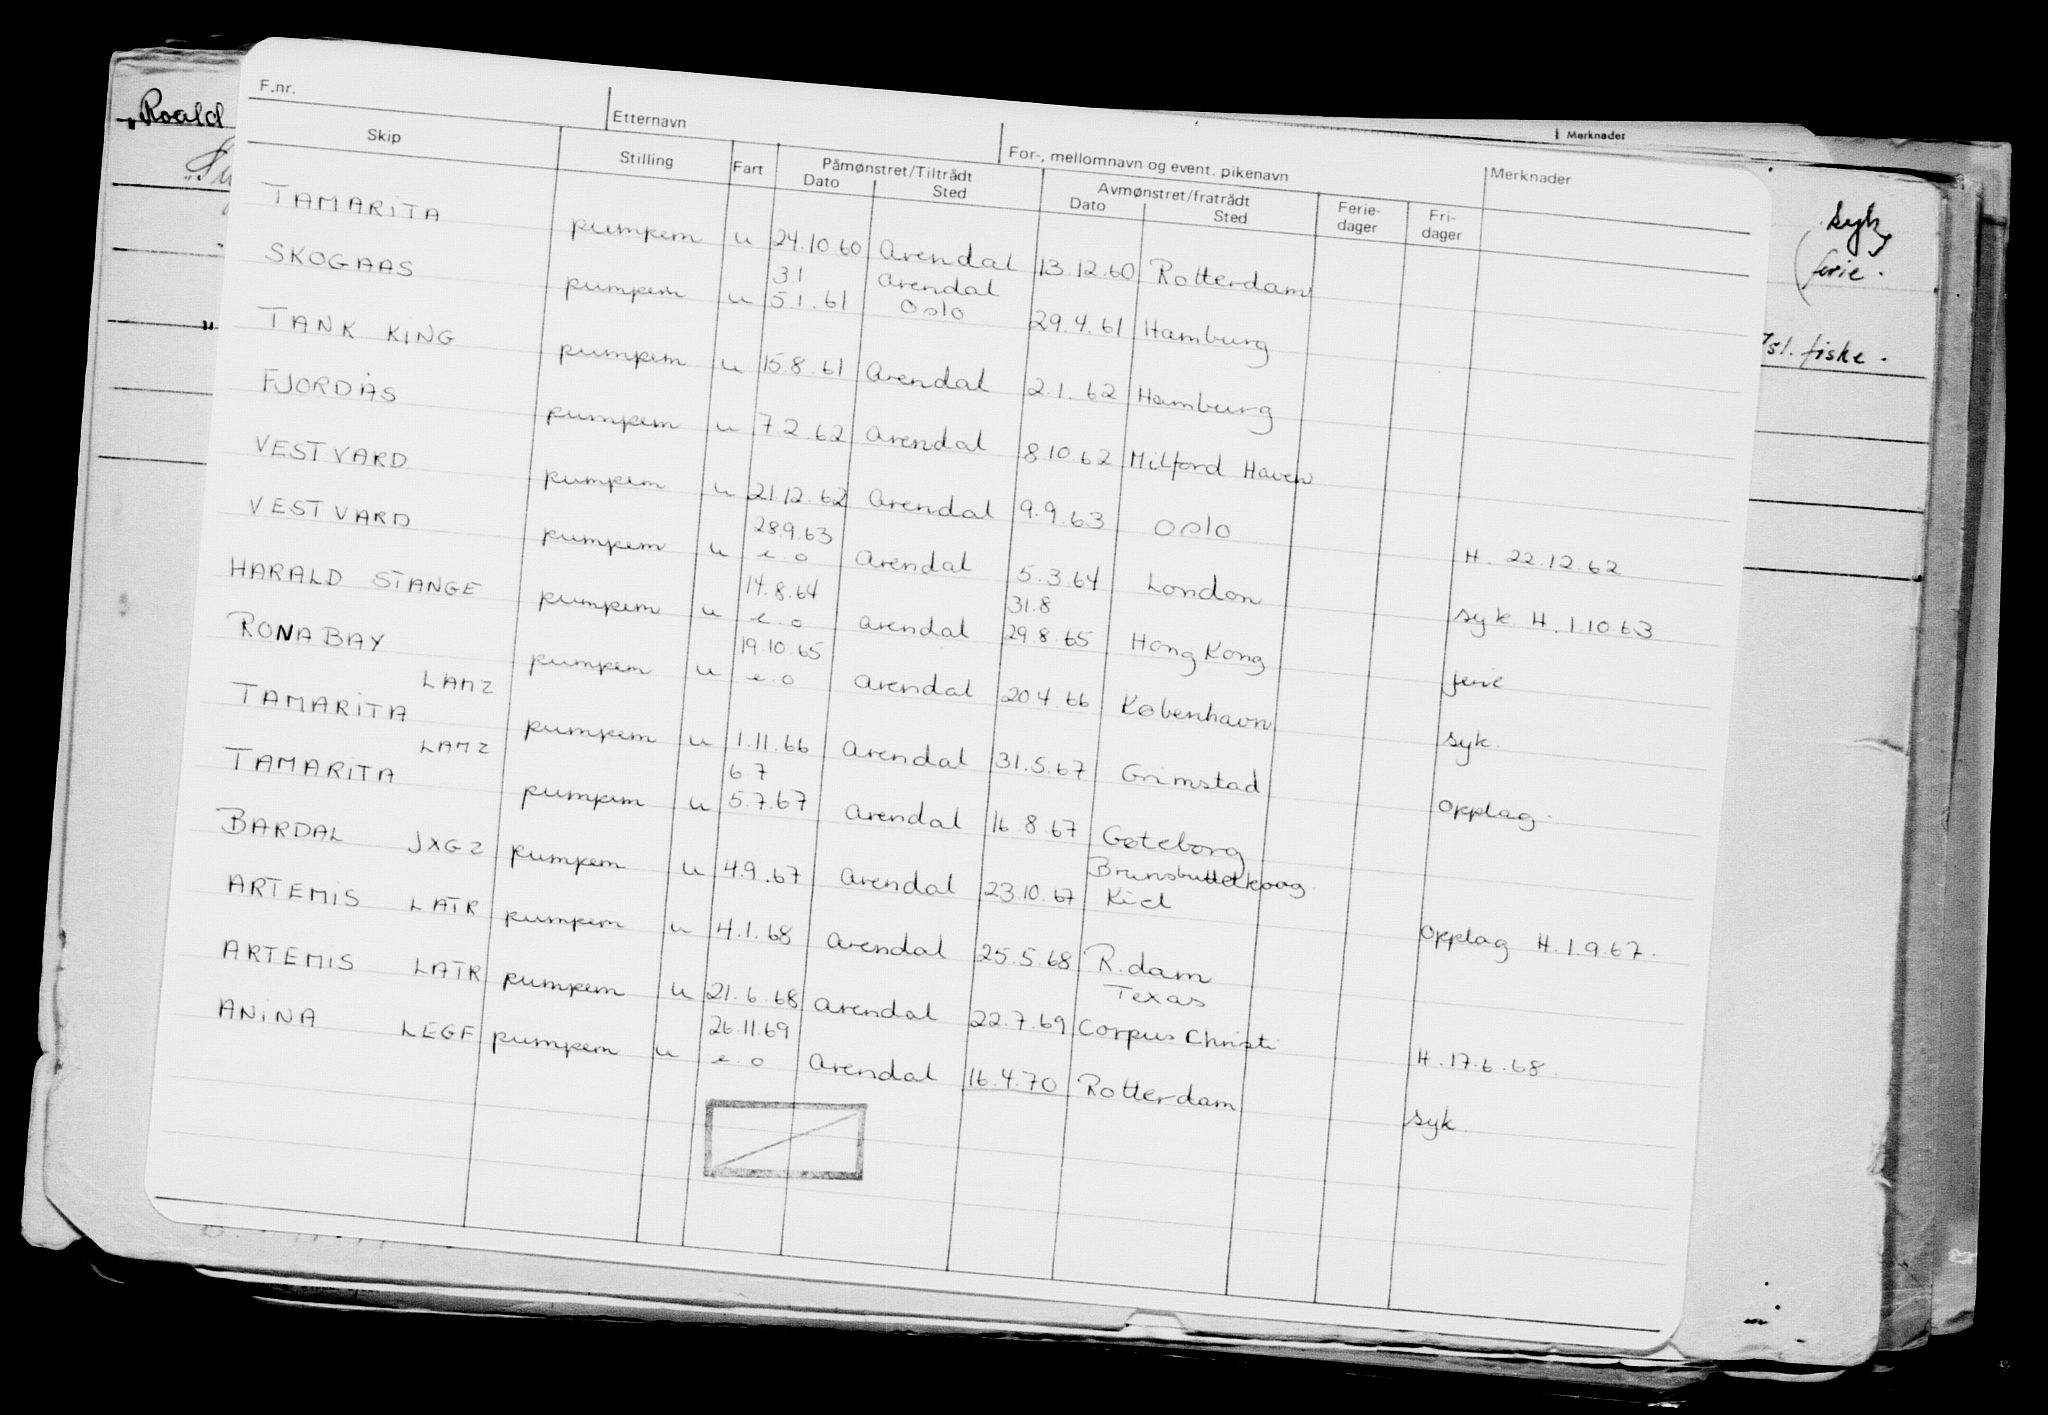 F.nr.
Etternavn
For-, mellomnavn og event. pikenavn
Merknader
Merknader
Skip
Stilling
Fart
Påmønstret/Tiltrådt
Dato Sted
Avmønstret/fratrådt
Dato Sted
Ferie-
dager
Fri-
dager
Roald
syk
ferie.
fiske.
TAMARITA pumpem u 24.10.60 Arendal 13.12.60 Rotterdam
3.1 Arendal
SKOGAAS pumpem u 5.1.61 Oslo 29.4.61 Hamburg
TANK KING pumpem u 15.8.61 Arendal 2.1.62 Hamburg
FJORDÅS pumpem u 7.2.62 Arendal 8.10.62 Milford Haven
VESTVARD pumpem u 21.12.62 Arendal 9.9.63 Oslo H. 22.12.62
28.9.63
VESTVARD pumpem u e.o Arendal 5.3.64 London syk H. 1.10.63
14.8.64 31.8
HARALD STANGE pumpem u e.o Arendal 29.8.65 Hong Kong ferie
19.10.65
RONABAY pumpem u e.o Arendal 20.4.66 København syk.
LAMZ
TAMARITA pumpem u 1.11.66 Arendal 31.5.67 Grimstad opplag.
LAMZ 6.7
TAMARITA pumpem u 5.7.67 Arendal 16.8.67 Gøteborg
Brunsbuttelkoog
BARDAL JXGZ pumpem u 4.9.67 Arendal 23.10.67 Kiel opplag H.1.9.67.
ARTEMIS LATR pumpem u 4.1.68 Arendal 25.5.68 R.dam
Texas
ARTEMIS LATR pumpem u 21.6.68 Arendal 22.7.69 Corpus Christi H.17.6.68.
26.11.69
ANINA LEGF pumpem u e.o Arendal 16.4.70 Rotterdam syk.